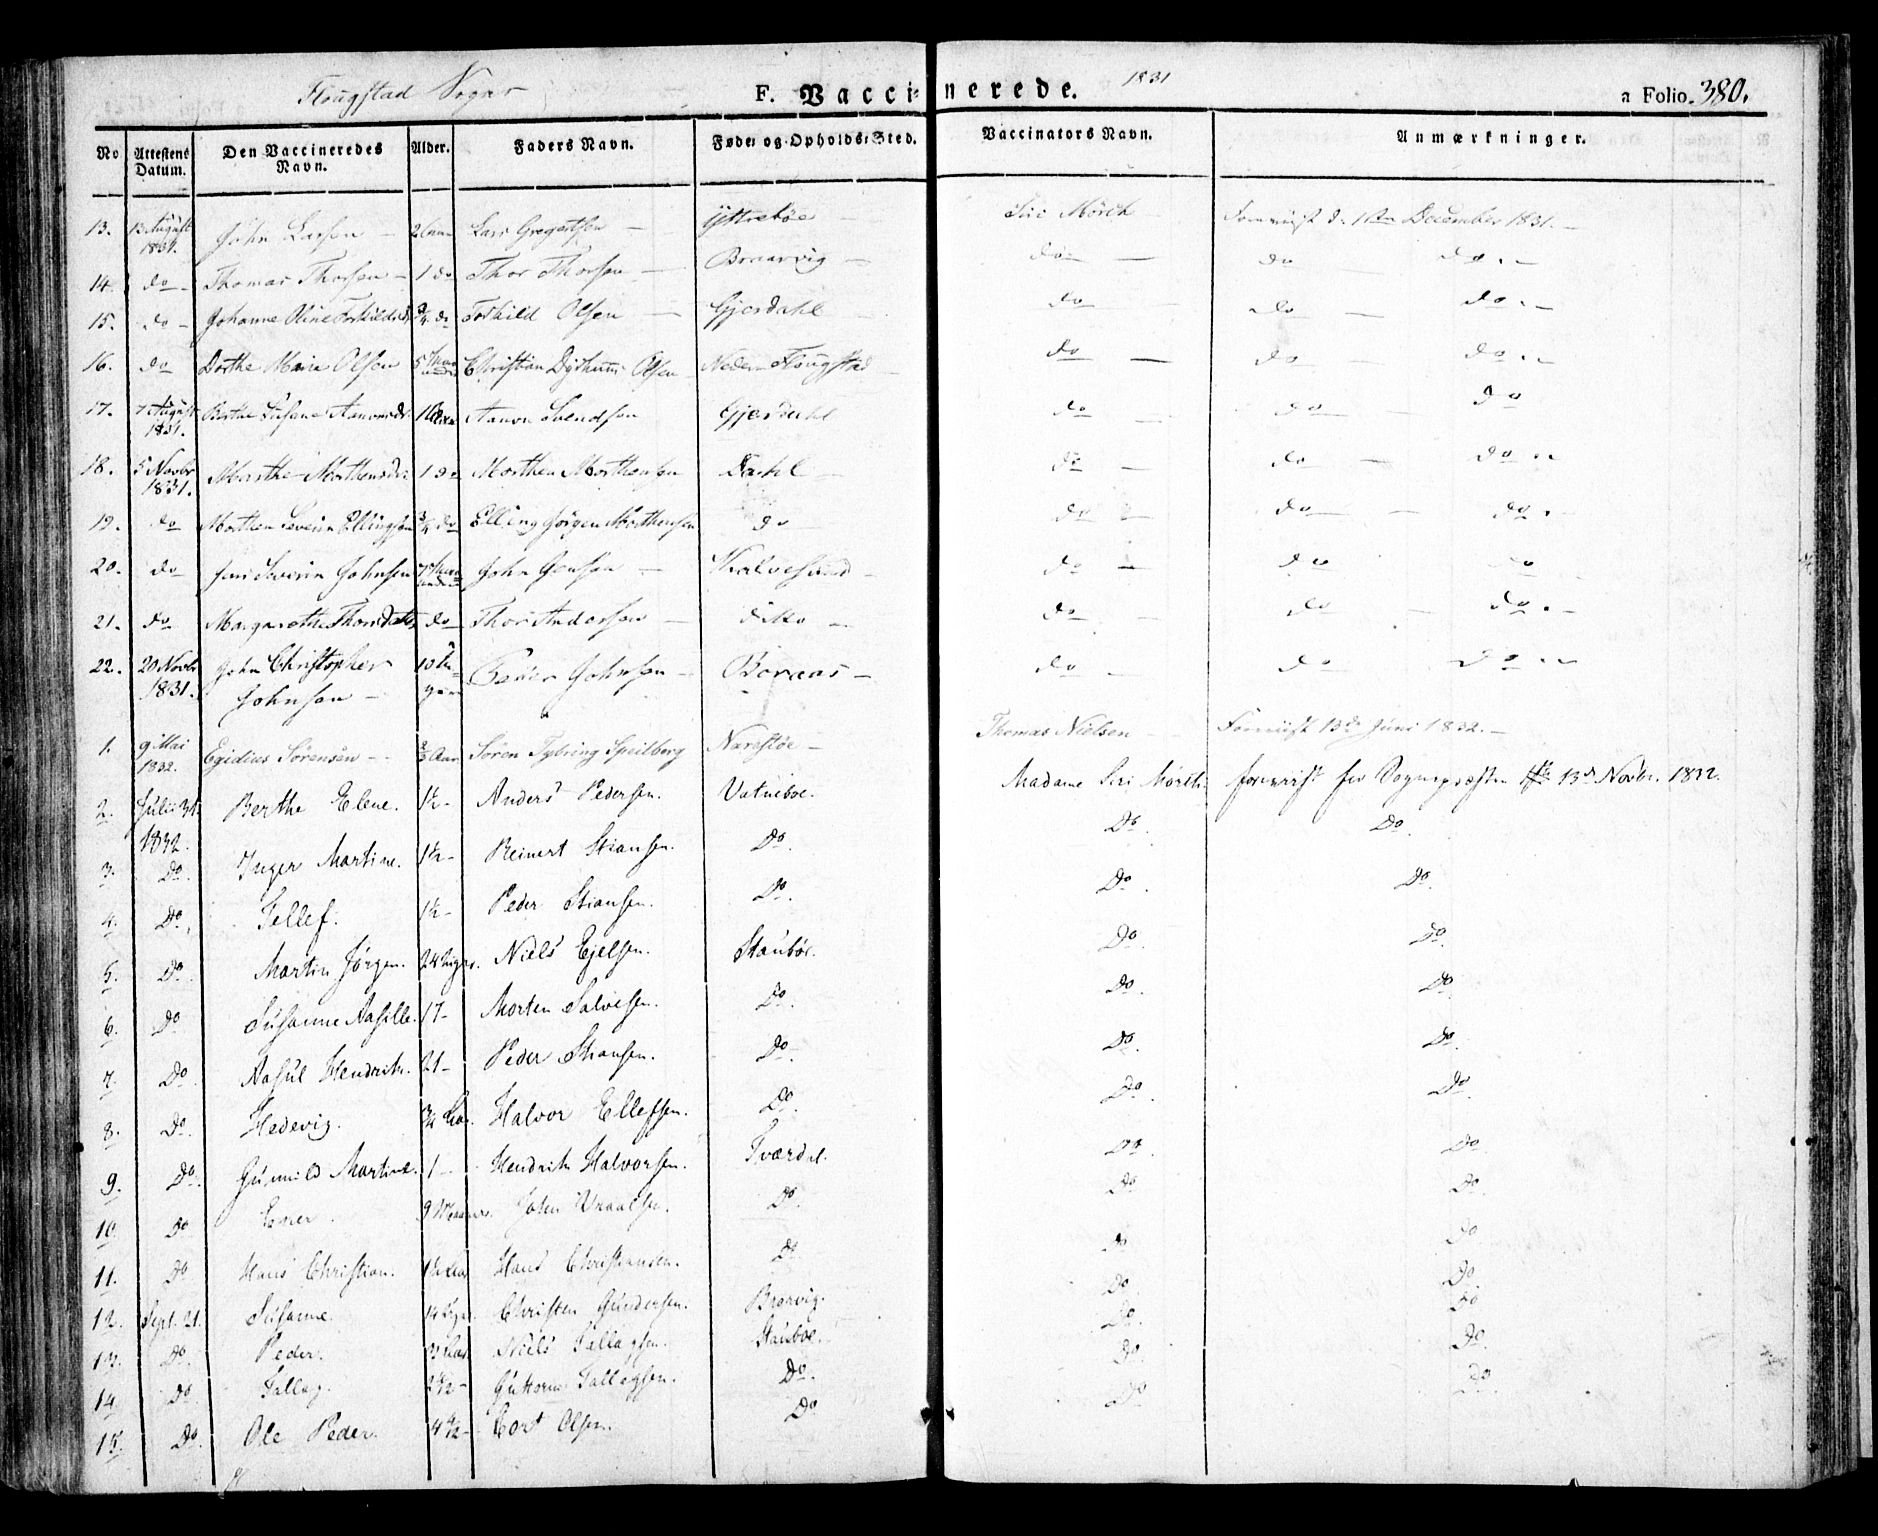 Flougstad Sogn F. Vaccinerede. 1831 a Folio. 380.
No Attestens Datum. Den Vaccineredes Navn. Alder. Faders Navn. Føde- og Opholds-Sted. Vaccinators Navn. Anmærkninger.
13. 13 August 1831. John Larsen 2 Aar Lars Gregertsen Yttrebøe Siri Mørch Foreviist d. December 1831.
14. do Thomas Thorsen 1 do Thor Thorsen Braarvig do do do
15. do Johanne Oline Torkildsdr 3/4 do Torkild Olsen Gjerdahl do do do
16. do Dorthe Marie Olsen 5 Christian Olsen Neder Flougstad do do do
17. 7 August 1831. Berthe Susane Aanonsdr. 1 Aanon Svendsen Gjerdahl do do do
18. 5 Novbr 1831. Marthe Morthensdr. 1 do Morthen Morthensen Dahl do do do
19. do Morthen Severin Ellingsen 3/4 do Elling Jørgen Morthensen do do do do
20. do Jens Severin Johnsen 7 John Jensen Kalvesund do do do
21. do Margarethe Thorsdatter do Thor Andersen ditto do do do
22. 20 Novbr 1831. John Christopher Johnsen 10 Peder Johnsen Boraas do do do
1. 9 Mai 1832. Egidius Sørensen 2/3 Aar Søren Tybring Speilberg Narestøe Thomas Nielsen Foreviist 13de Juni 1832.
2. Julii 31. 1832. Berthe Elene. 1½ Anders Pedersen. Vatneboe. Madame Siri Mørch. foreviist for Sognepræsten 13de Novbr. 1832.
3. Do. Inger Martine. 1½ Reinert Stiansen. Do. Do. Do.
4. Do. Tellef. 1½ Peder Stiansen. Do. Do. Do.
5. Do. Martin Jørgen. 24 Uger. Niels Ejelsen. Staubøe. Do. Do.
6. Do Susanne Aasille. 17 Morten Salvesen. Do. Do. Do.
7. Do. Aasul Hendrik. 21 Peder Stiansen. Do. Do. Do.
8. Do. Hedevig. 3/4 Aar. Halvor Ellefsen. Do. Do. Do.
9. Do. Gunnild Martine. 1 Hendrik Halvorsen. Tværdal. Do. Do
10. Do 9 John Do. Do Do.
11. Do Hans Christian. 1½ Aar Hans Christiansen. Do. Do Do
12. Sept. 21. Susanne. 14 Uger Christen Gundersen. Brorvig. Do Do.
13. Do. Peder. Aar. Niels Tallagsen. Stauboe. Do. Do
14 Do Tallag. 2½ Guttorm Tallagsen. Do. Do. Do.
15. Do. Ole Peder. 4½ Cort Olsen. Do Do Do.